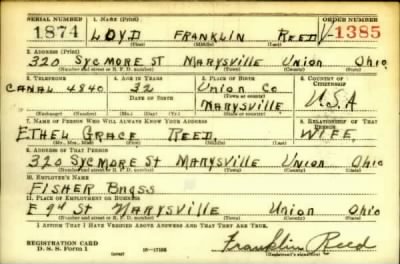 SERIAL NUMBER 1. NAME (Print) ORDER NUMBER
1874 LOYD FRANKLIN REED V-1385
(First) (Middle) (Last)
2. ADDRESS (Print)
320 SYCMORE ST MARYSVILLE UNION OHIO
(Number and street or R. F. D. number) (Town) (County) (State)
3. TELEPHONE 4. AGE IN YEARS 5. PLACE OF BIRTH 6. COUNTRY OF CITIZENSHIP
CANAL 4840 32 UNION CO U.S.A
DATE OF BIRTH (Town or county)
MARYSVILLE
(Exchange) (Number) (Mo.) (Day) (Yr.) (State or country)
7. NAME OF PERSON WHO WILL ALWAYS KNOW YOUR ADDRESS 8. RELATIONSHIP OF THAT PERSON
ETHEL GRACE REED, WIFE
(Mr., Mrs., Miss) (First) (Middle) (Last)
9. ADDRESS OF THAT PERSON
320 SYCMORE ST MARYSVILLE UNION OHIO
(Number and street or R. F. D. number) (Town) (County) (State)
10. EMPLOYER'S NAME
FISHER BRASS
11. PLACE OF EMPLOYMENT OR BUSINESS
E 9th ST MARYSVILLE UNION OHIO
(Number and street or R. F. D. number) (Town) (County) (State)
I AFFIRM THAT I HAVE VERIFIED ABOVE ANSWERS AND THAT THEY ARE TRUE.
REGISTRATION CARD
D. S. S. Form 1 16-17105 Franklin Reed
(Registrant's signature)